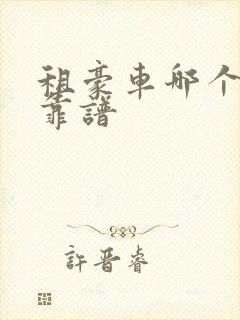 租豪車哪个
靠譜
許晋睿